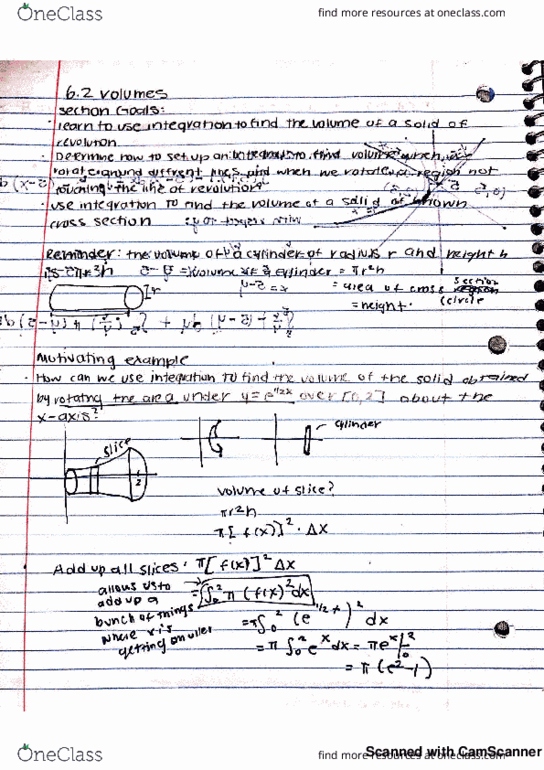 OneClass
find more resources at oneclass.com
6.2 volumes
section Goals:
· learn to use integration to find the volume of a solid of
revolution
· Determine how to set up an integral to find volume when we
rotate around different lines, and when we rotate a region not
touching the line of revolution
· use integration to find the volume of a solid of known
cross section
Reminder: the volume of a cylinder of radius r and height h
= volume of a cylinder = πr²h
= area of cross section
(circle
= height.
r
Motivating example
· How can we use integration to find the volume of the solid obtained
by rotating the area under y=e^1/2x over [0,2] about the
x-axis?
slice
cylinder
2
volume of slice?
πr²h
π[f(x)]² · Δx
Add up all slices: π[f(x)]² Δx
allows us to
add up a
bunch of things
where x is
getting smaller
= ∫₀² π (f(x)² dx
= π∫₀² (e^1/2x)² dx
= π ∫₀² e^x dx = πe^x |₀²
= π(e²-1)
OneClass
find more resources at oneclass.com
Scanned with CamScanner